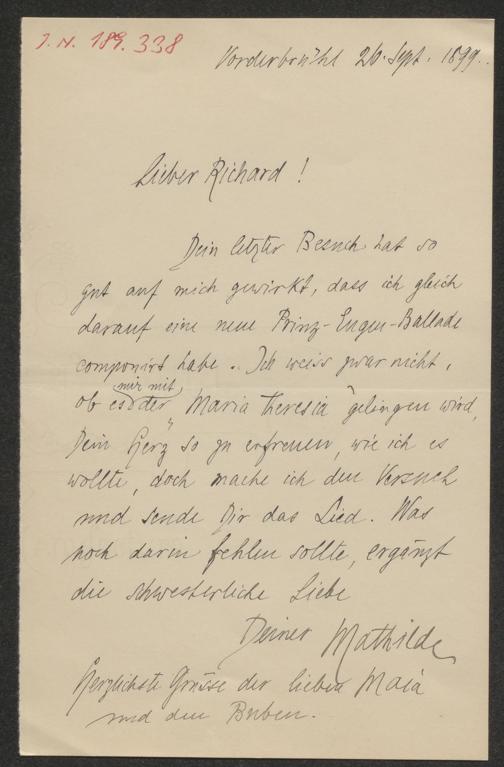 J.N. 189.338
Vorderbrühl 26. Sept. 1899.
Lieber Richard!
Dein letzter Besuch hat so
gut auf mich gewirkt, dass ich gleich
darauf eine neue Prinz-Eugen-Ballade
componirt habe. Ich weiss zwar nicht,
mir mit
ob es der „Maria Theresia" gelingen wird,
Dein Herz so zu erfreuen, wie ich es
wollte, doch mache ich den Versuch
und sende Dir das Lied. Was
noch darin fehlen sollte, ergänzt
die schwesterliche Liebe
Deiner Mathilde
Herzlichste Grüsse der lieben Maia
und den Buben.